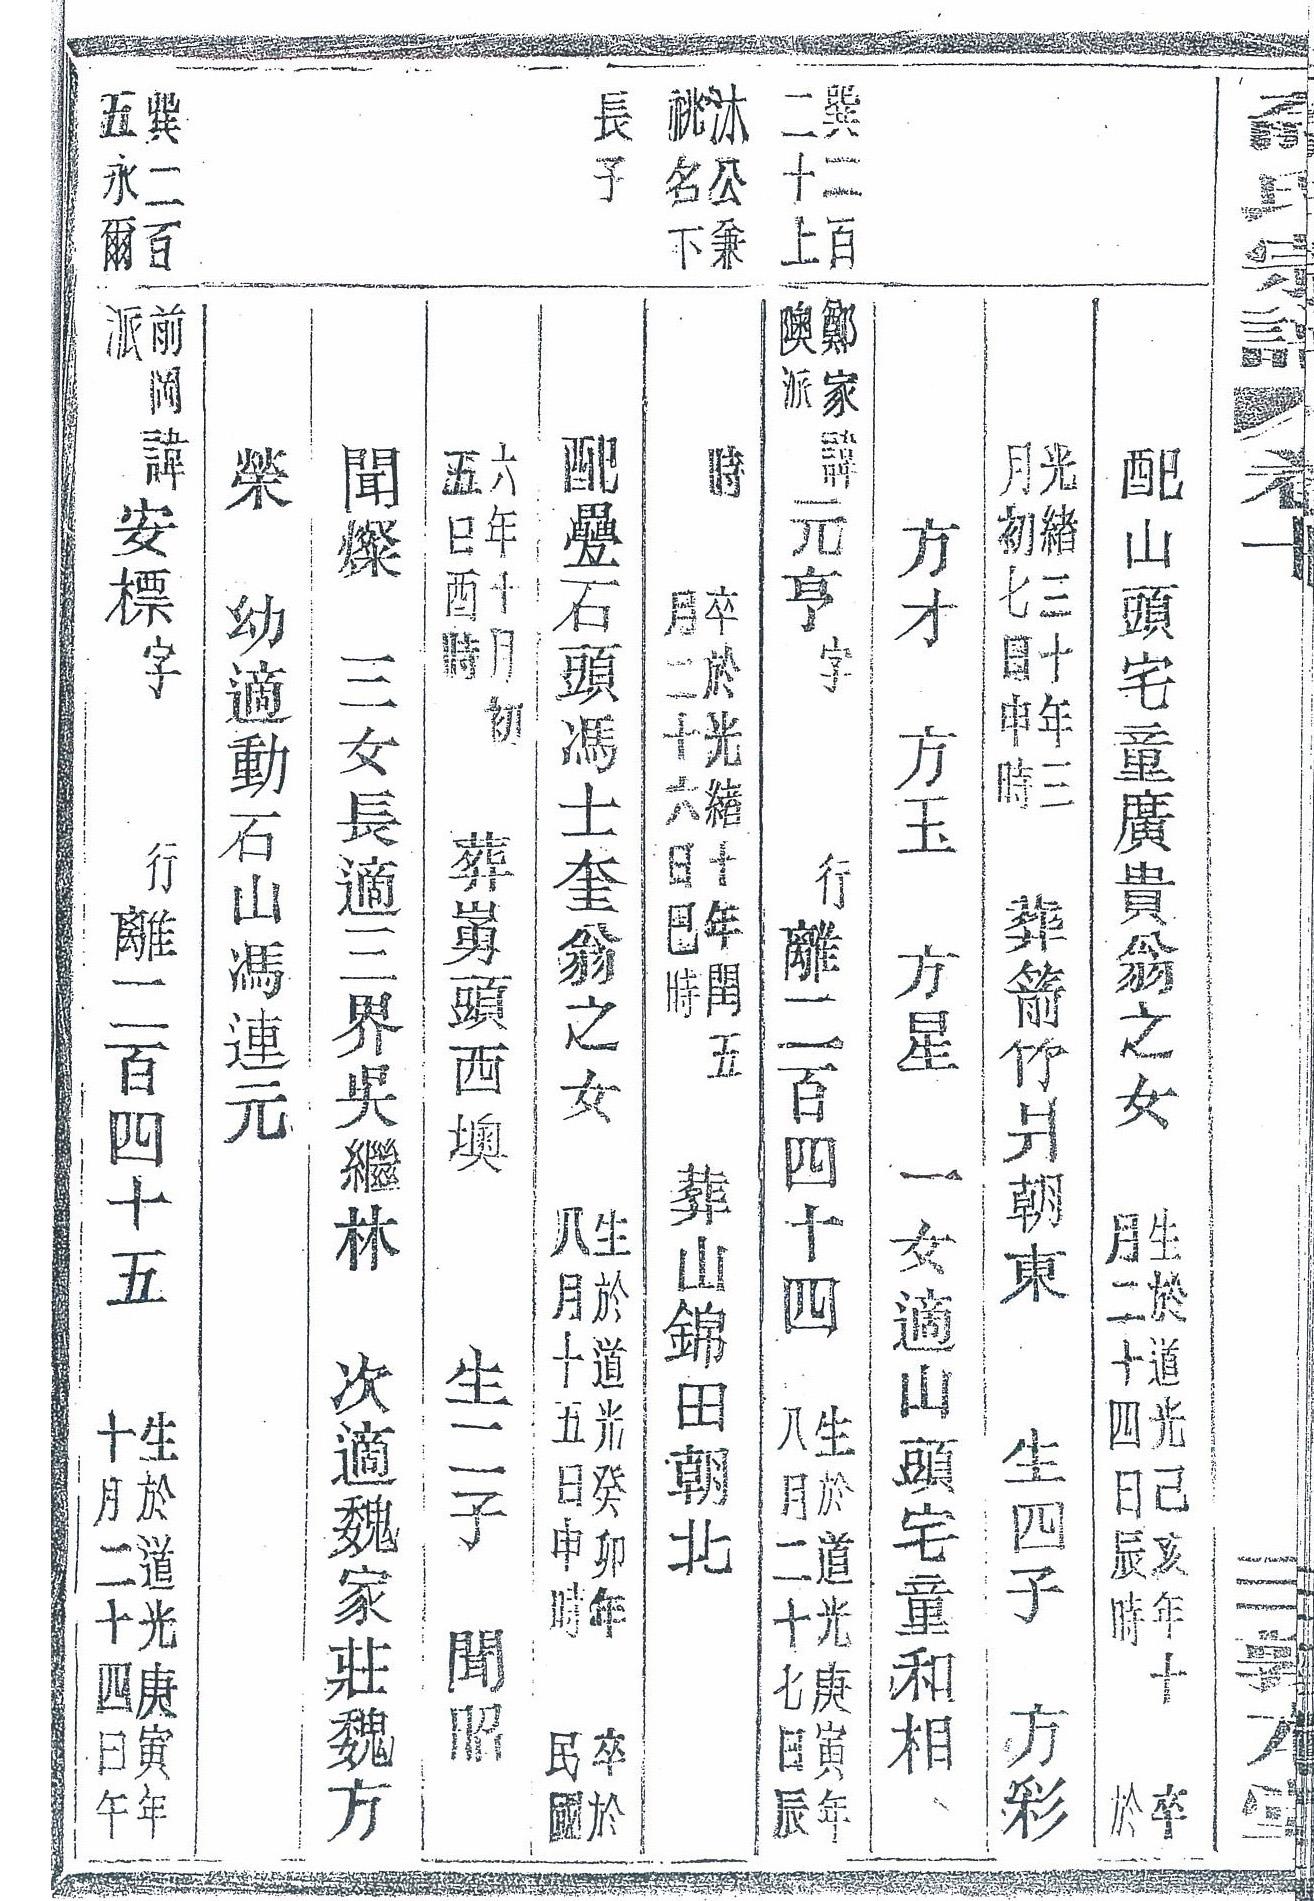 氏宗譜 卷十
配山頭宅童廣貴翁之女 生於道光己亥年十月二十四日辰時 卒於
光緒三十年三月初七日申時 葬箭竹爿朝東 生四子 方彩
方才 方玉 方星 一女適山頭宅童和相
巽二百二十上 鄭家隩派 諱元亨 字 行離二百四十四 生於道光庚寅年八月二十七日辰
沐公兼祧名下 時 卒於光緒十年閏五月二十六日巳時 葬山錦田朝北
長子 配疊石頭馮士奎翁之女 生於道光癸卯年八月十五日申時 卒於民國
六年十月初五巳酉時 葬嵩頭西墺 生二子 聞昭
聞燦 三女長適三界吳繼林 次適魏家莊魏方
榮 幼適動石山馮連元
巽二百五永爾 前岡派 諱安標 字 行離二百四十五 生於道光庚寅年十月二十四日午